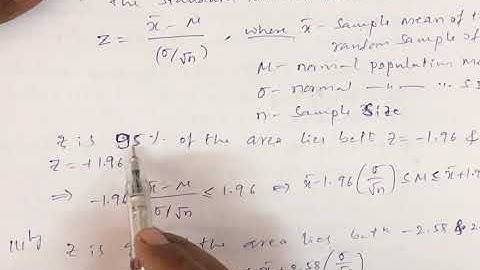 the standard
z = x̄ - M / (σ/√n) , where x̄ - Sample mean of
random sample of
M - normal population
σ - normal — " —
n - Sample Size
z is 95% of the area lies betⁿ z = -1.96 &
z = +1.96
⇒ -1.96 x̄ - M / σ/√n ≤ 1.96 ⇔ x̄ - 1.96 (σ/√n) ≤ M ≤ x̄ + 1.9
z is the area lies betⁿ - 2.58 &